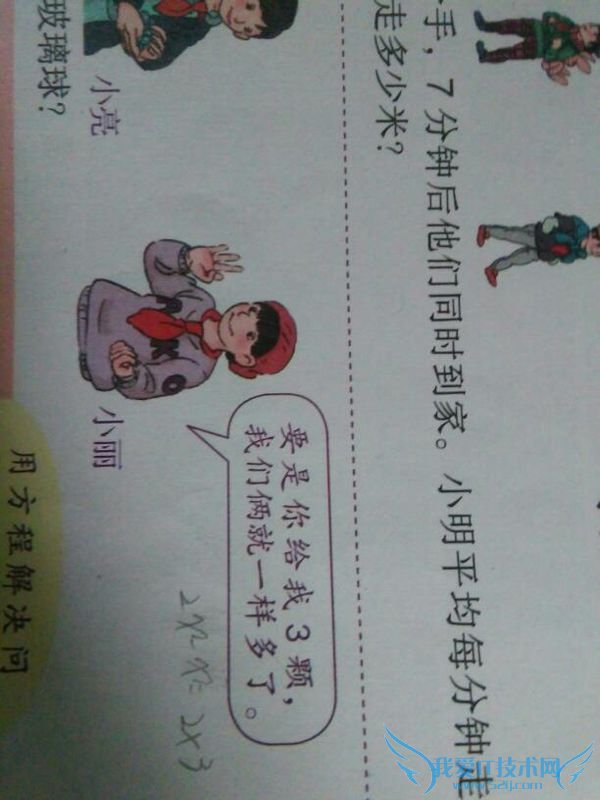 手，7分钟后他们同时到家。小明平均每分钟走
走多少米？
要是你给我3颗，
我们俩就一样多了。
2×3
小亮
小丽
玻璃球？
用方程解决问
我爱IT技术网